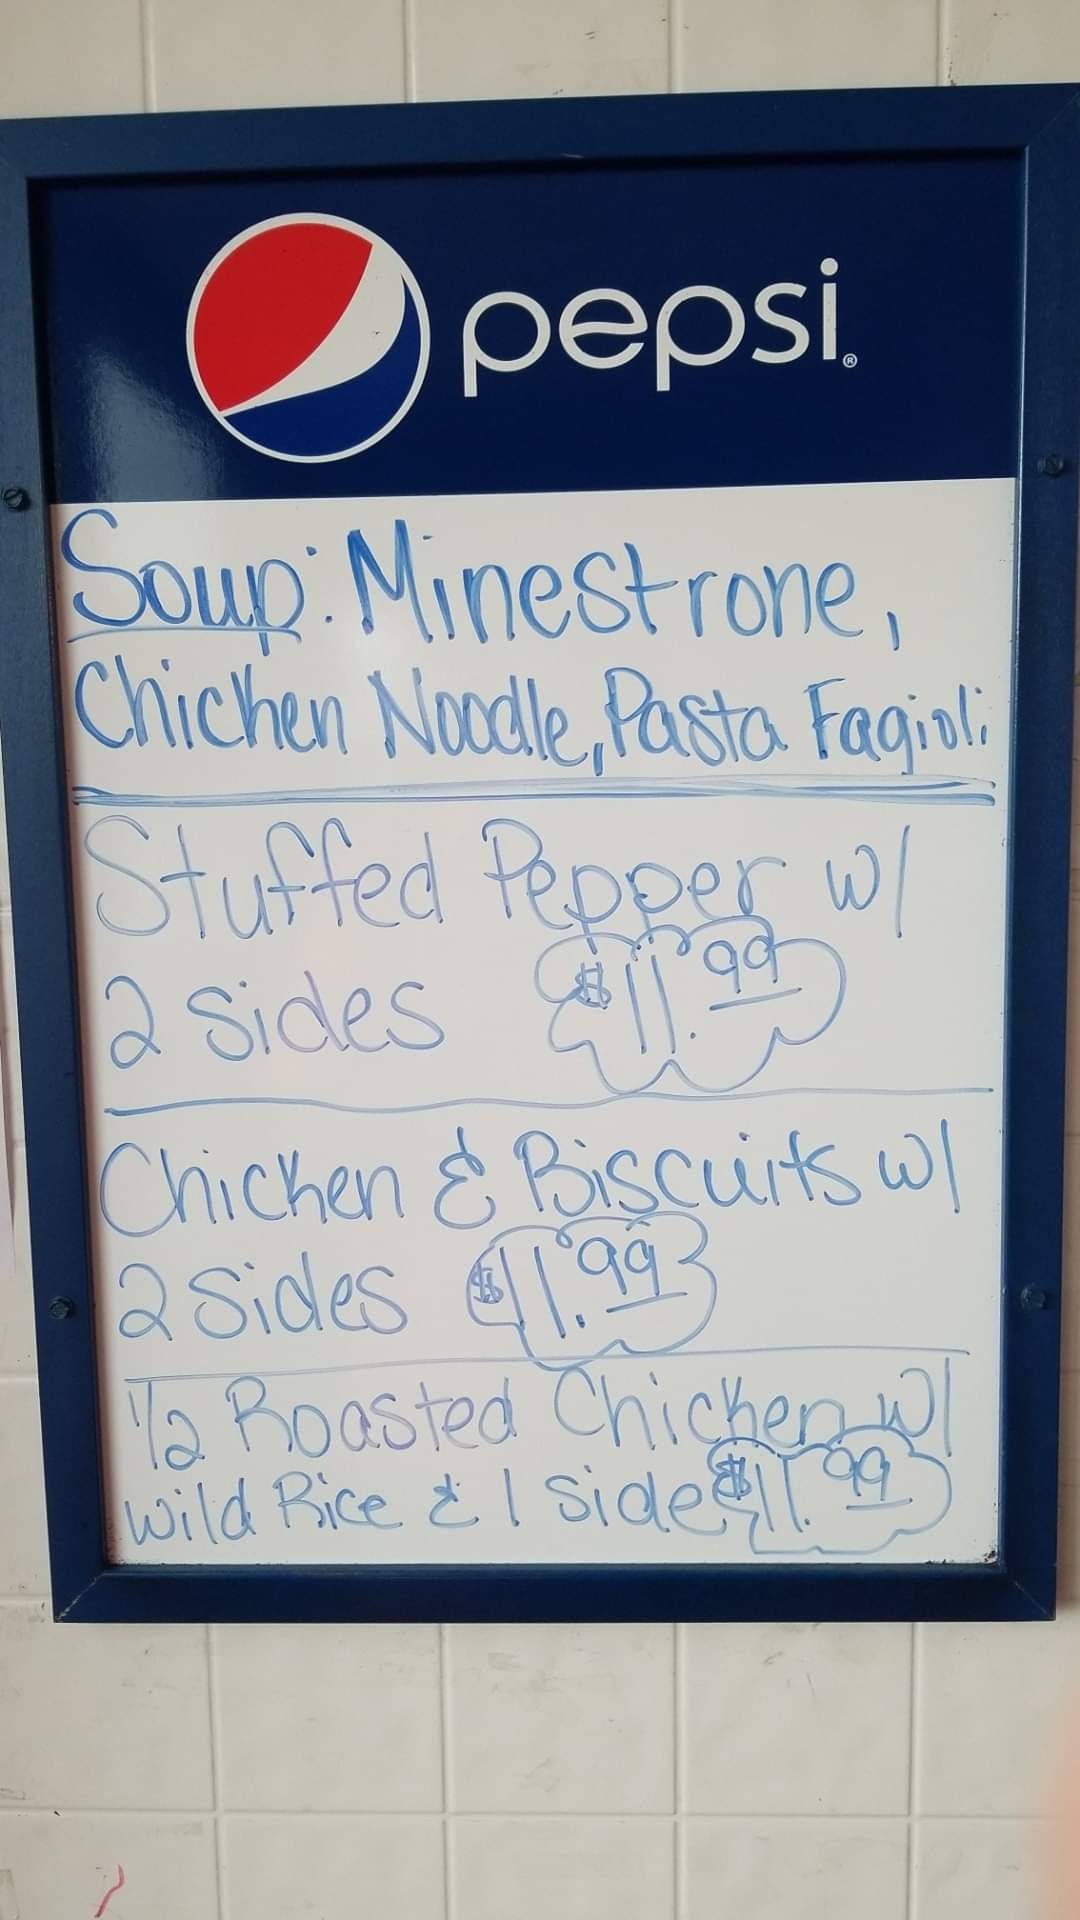 pepsi®
Soup: Minestrone,
Chicken Noodle, Pasta Fagioli
Stuffed Pepper w/
2 sides $11.99
Chicken & Biscuits w/
2 sides $11.99
1/2 Roasted Chicken w/
wild Rice & 1 side $11.99